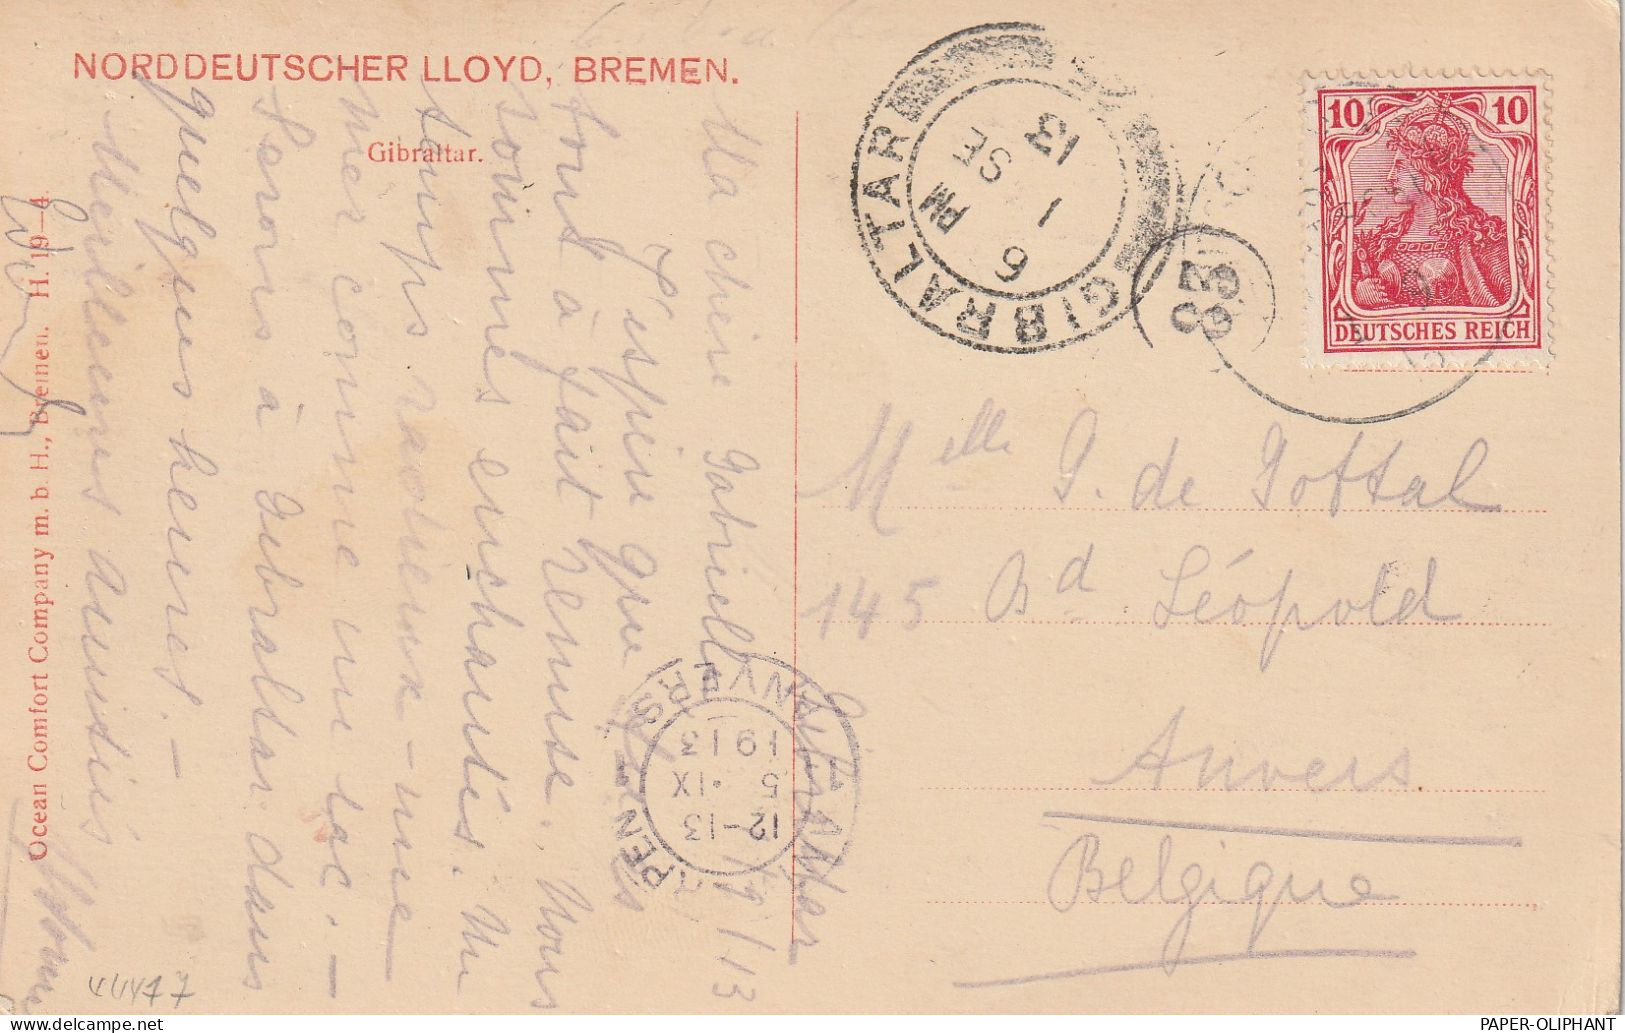 NORDDEUTSCHER LLOYD, BREMEN.
Gibraltar.
Ocean Comfort Company m. b. H., Bremen. H. 19—4.
Gibraltar
1/9/13
Ma chère Gabrielle
J'espère que
tout à fait remise. Nous
sommes enchantés. Un
temps radieux – une
mer comme un lac. –
Serons à Gibraltar dans
quelques heures. –
Meilleures amitiés
GIBRALTAR
6 PM
1 SE
13
ANVERS
12–13
5 ·IX
1913
10 10
DEUTSCHES REICH
Melle G. de Pottal
145 Bd Léopold
Anvers
Belgique
PAPER-OLIPHANT